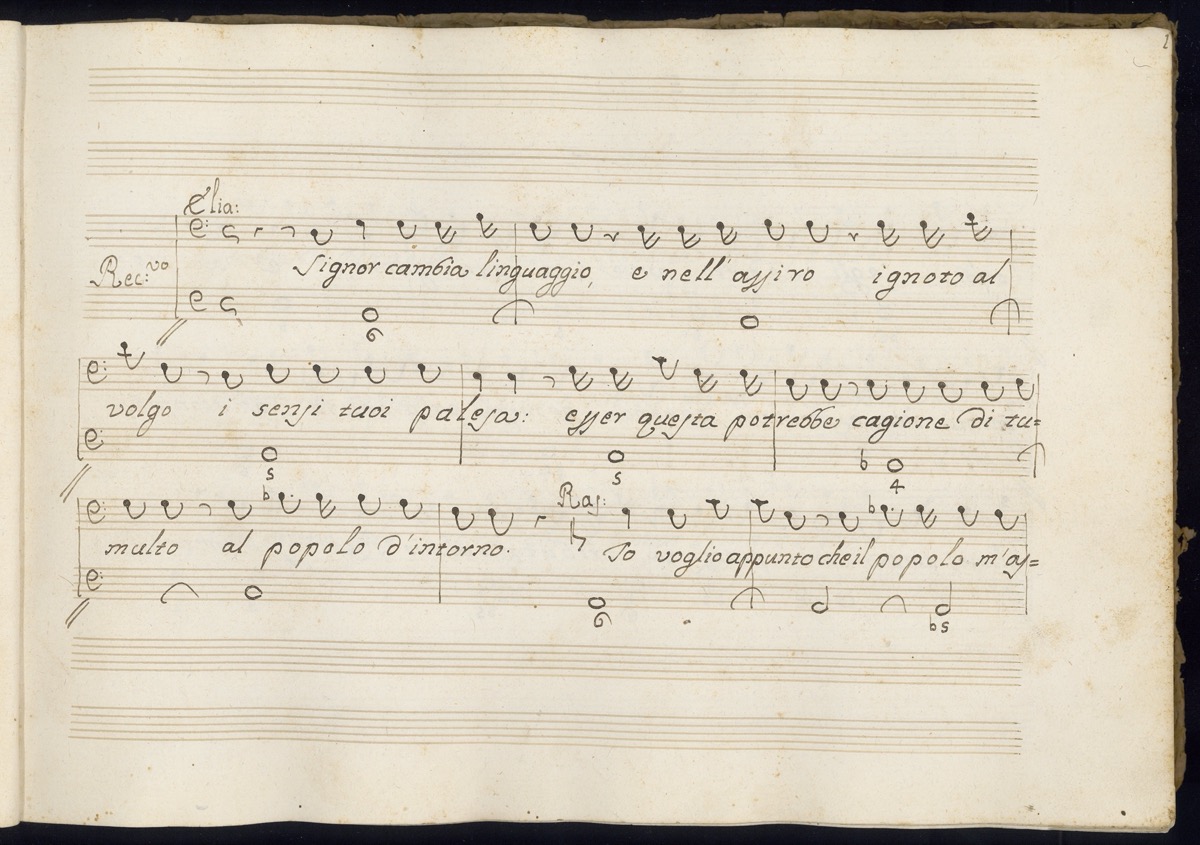 1
Elia:
Rec:vo
Signor cambia linguaggio, e nell' assiro ignoto al
6
volgo i sensi tuoi palesa: esser questa potrebbe cagione di tu=
5 5 4
Ras:
multo al popolo d'intorno. Io voglio appunto che il popolo m'as=
6 b5